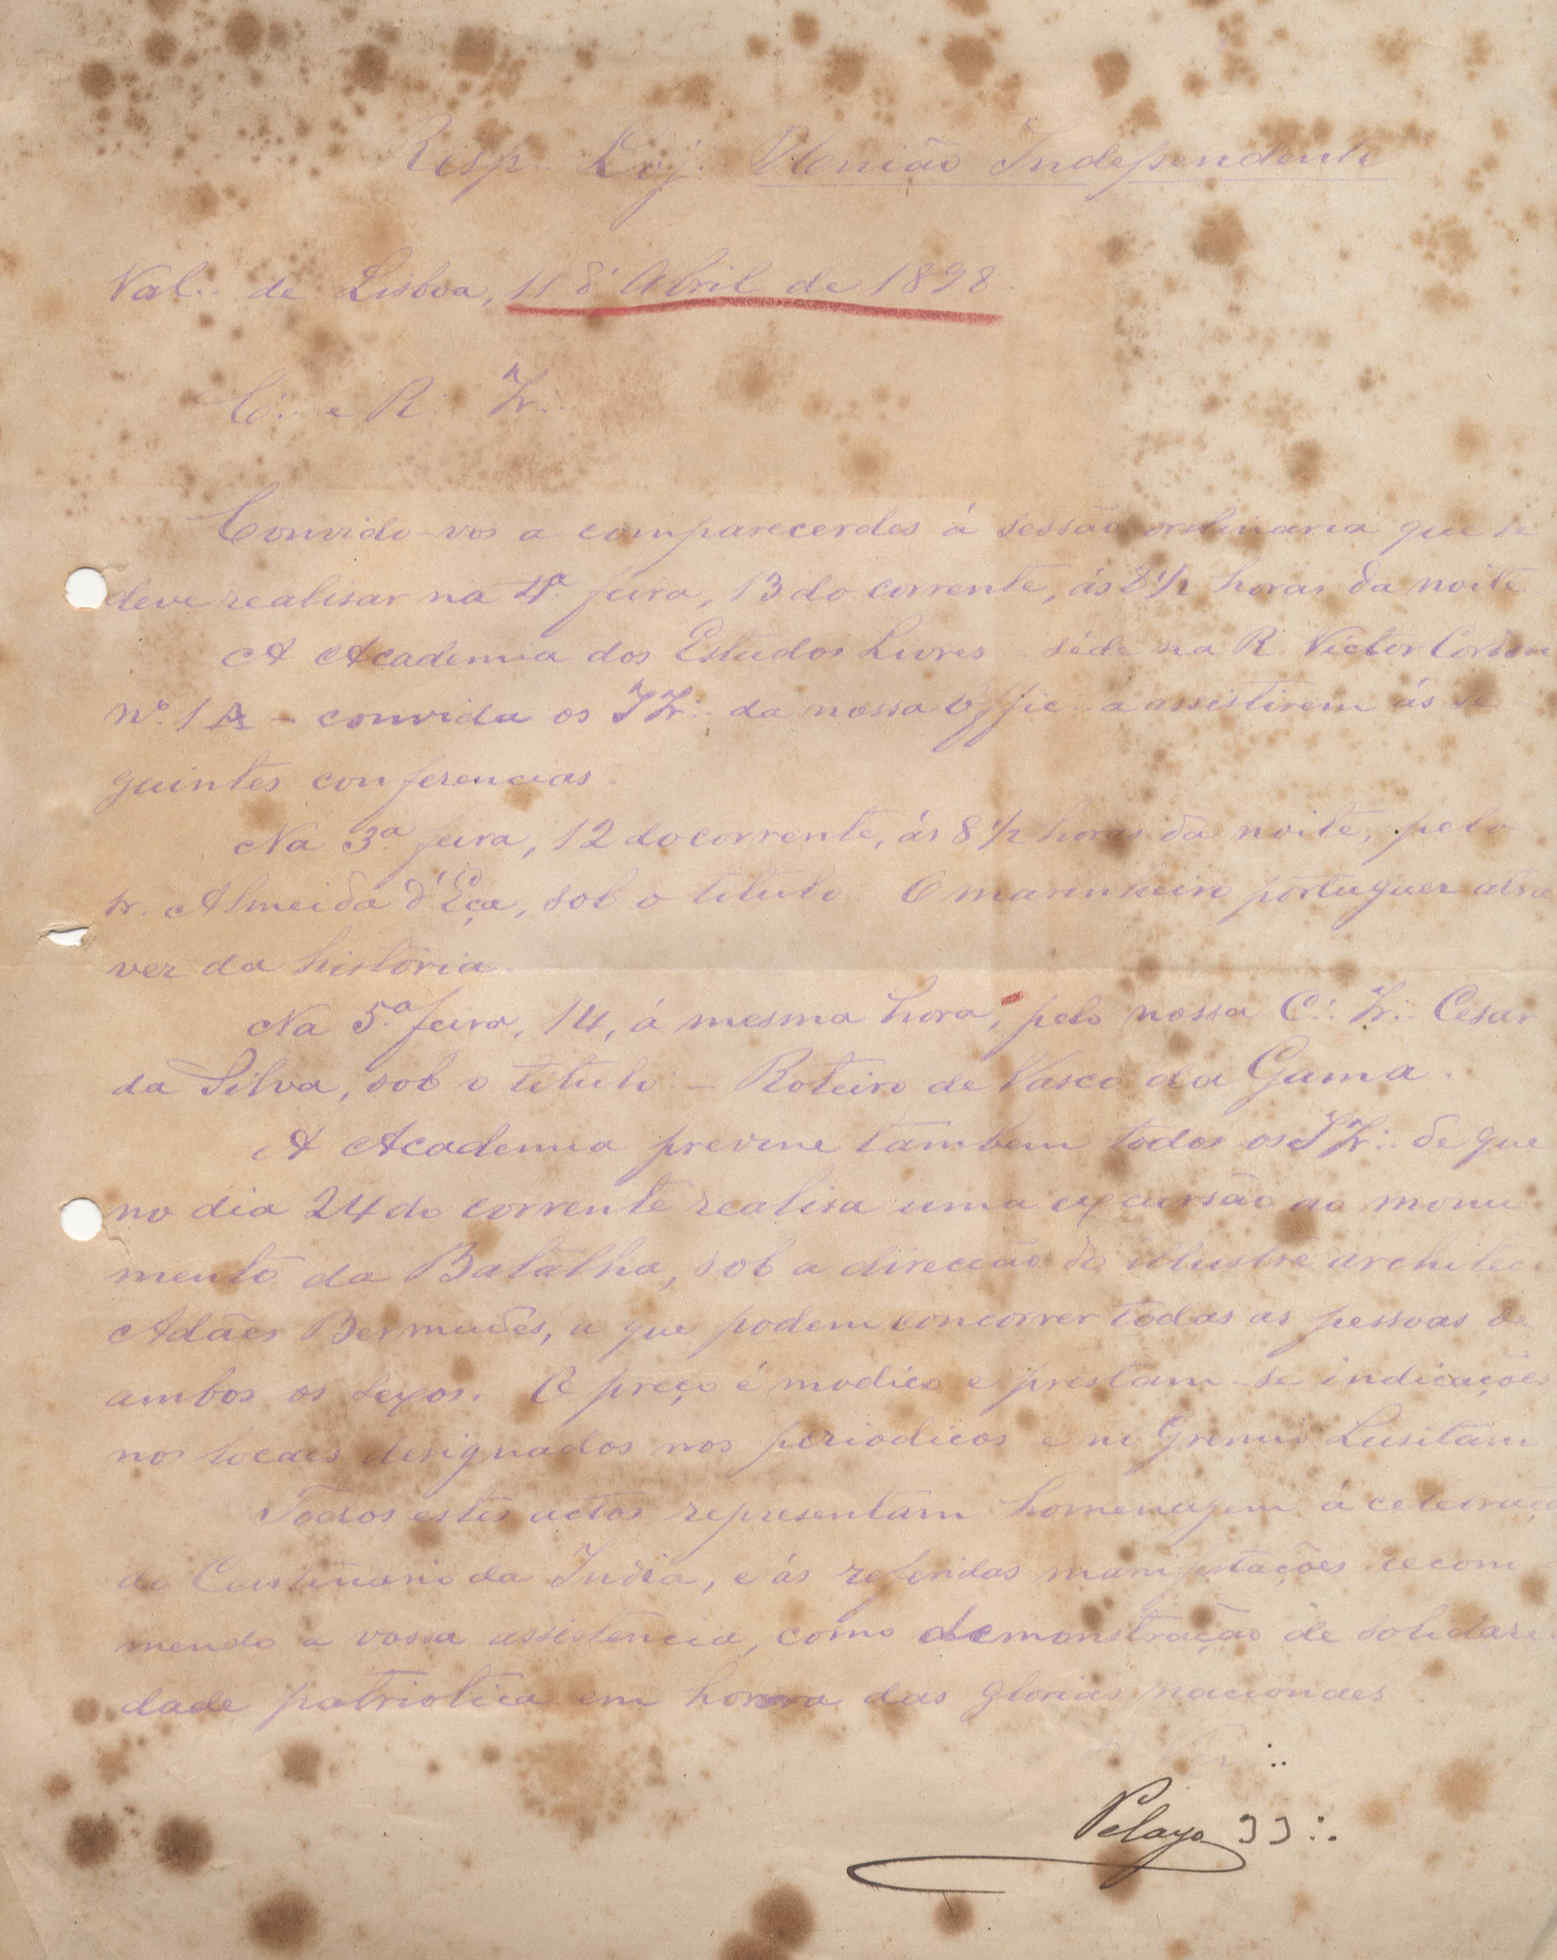 Resp∴ Loj∴ União Independente
Val∴ de Lisboa, 11 d'Abril de 1898.
C∴ e R∴ Ir∴
Convido-vos a comparecerdes á sessão ordinaria que se
deve realisar na 4ª feira, 13 do corrente, ás 8 1/2 horas da noite
A Academia dos Estudos Livres - séde na R. Victor Cordon
nº 1 A - convida os IIr∴ da nossa Offic∴ a assistirem ás se
guintes conferencias.
Na 3ª feira, 12 do corrente, ás 8 1/2 horas da noite, pelo
sr. Almeida d'Eça, sob o titulo O marinheiro portuguez atra
vez da historia.
Na 5ª feira, 14, á mesma hora, pelo nosso C∴ Ir∴ Cesar
da Silva, sob o titulo - Roteiro de Vasco da Gama.
A Academia previne tambem todos os IIr∴ de que
no dia 24 do corrente realisa uma excursão ao monu
mento da Batalha, sob a direcção do illustre architec
Adães Bermudes, a que podem concorrer todas as pessoas de
ambos os sexos. O preço é modico e prestam-se indicações
nos locaes designados nos periodicos e no Gremio Lusitan
Todos estes actos representam homenagem á celebraçã
do Centenario da India, e ás referidas manifestações recom
mendo a vossa assistencia, como demonstração de solidari
dade patriotica em honra das glorias nacionaes
Pelayo 33∴